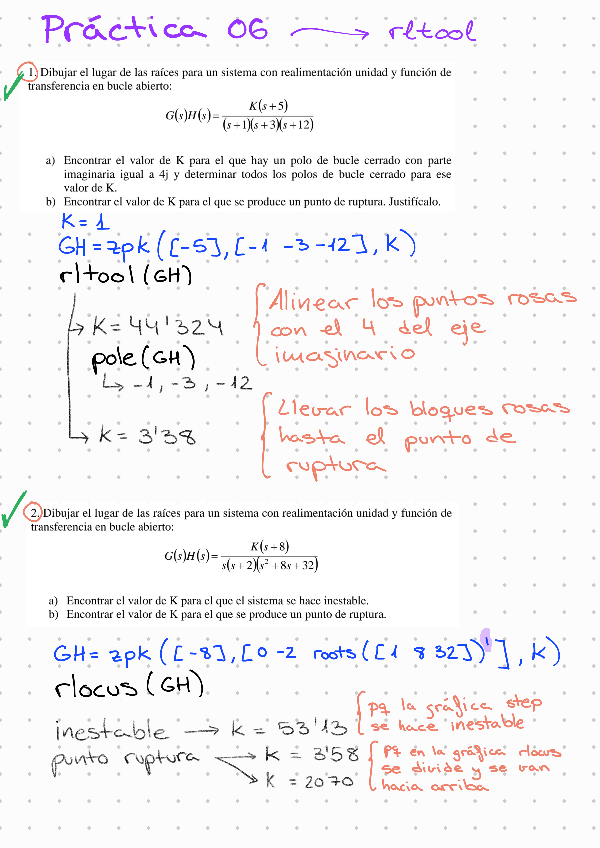 Práctica 06 → rltool
1. Dibujar el lugar de las raíces para un sistema con realimentación unidad y función de
transferencia en bucle abierto:
G(s)H(s) = K(s+5) / (s+1)(s+3)(s+12)
a) Encontrar el valor de K para el que hay un polo de bucle cerrado con parte
imaginaria igual a 4j y determinar todos los polos de bucle cerrado para ese
valor de K.
b) Encontrar el valor de K para el que se produce un punto de ruptura. Justifícalo.
K = 1
GH = zpk([-5], [-1 -3 -12], K)
rltool(GH)
↳ K = 44'324
pole(GH)
↳ -1, -3, -12
Alinear los puntos rosas
con el 4 del eje
imaginario
↳ K = 3'38
Llevar los bloques rosas
hasta el punto de
ruptura
2. Dibujar el lugar de las raíces para un sistema con realimentación unidad y función de
transferencia en bucle abierto:
G(s)H(s) = K(s+8) / s(s+2)(s²+8s+32)
a) Encontrar el valor de K para el que el sistema se hace inestable.
b) Encontrar el valor de K para el que se produce un punto de ruptura.
GH = zpk([-8], [0 -2 roots([1 8 32])'], K)
rlocus(GH)
inestable → K = 53'13
pq la gráfica step
se hace inestable
punto ruptura → K = 3'58
→ K = 20'70
pq en la gráfica rlocus
se divide y se van
hacia arriba